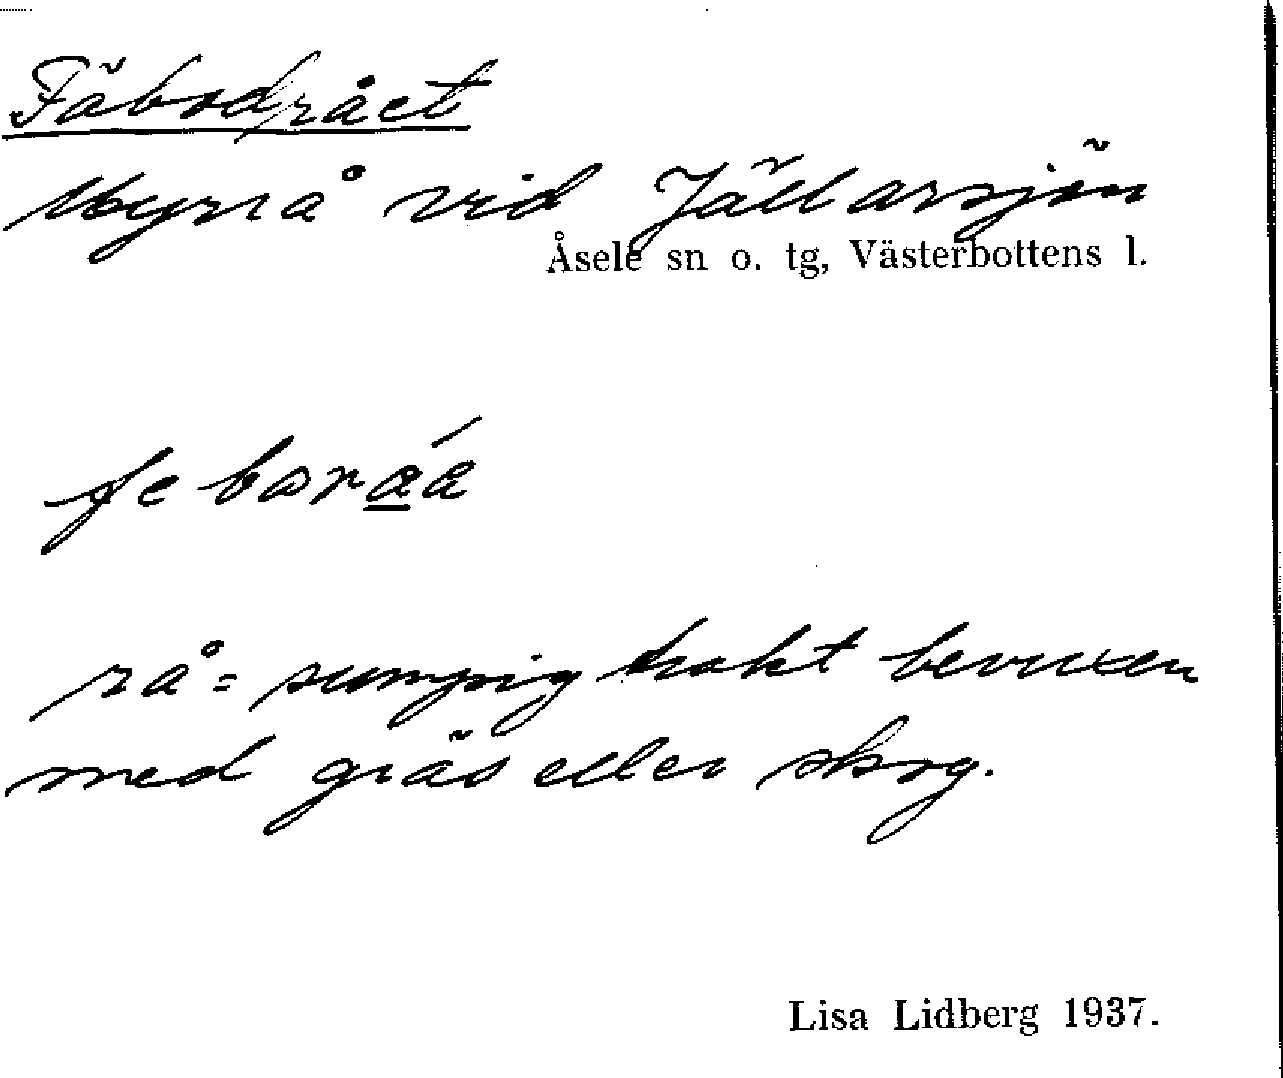 Fäbodrået
Myrrå vid Jällarsjön
Åsele sn o. tg, Västerbottens l.
feboråå
rå = sumpig trakt bevuxen
med gräs eller skog.
Lisa Lidberg 1937.